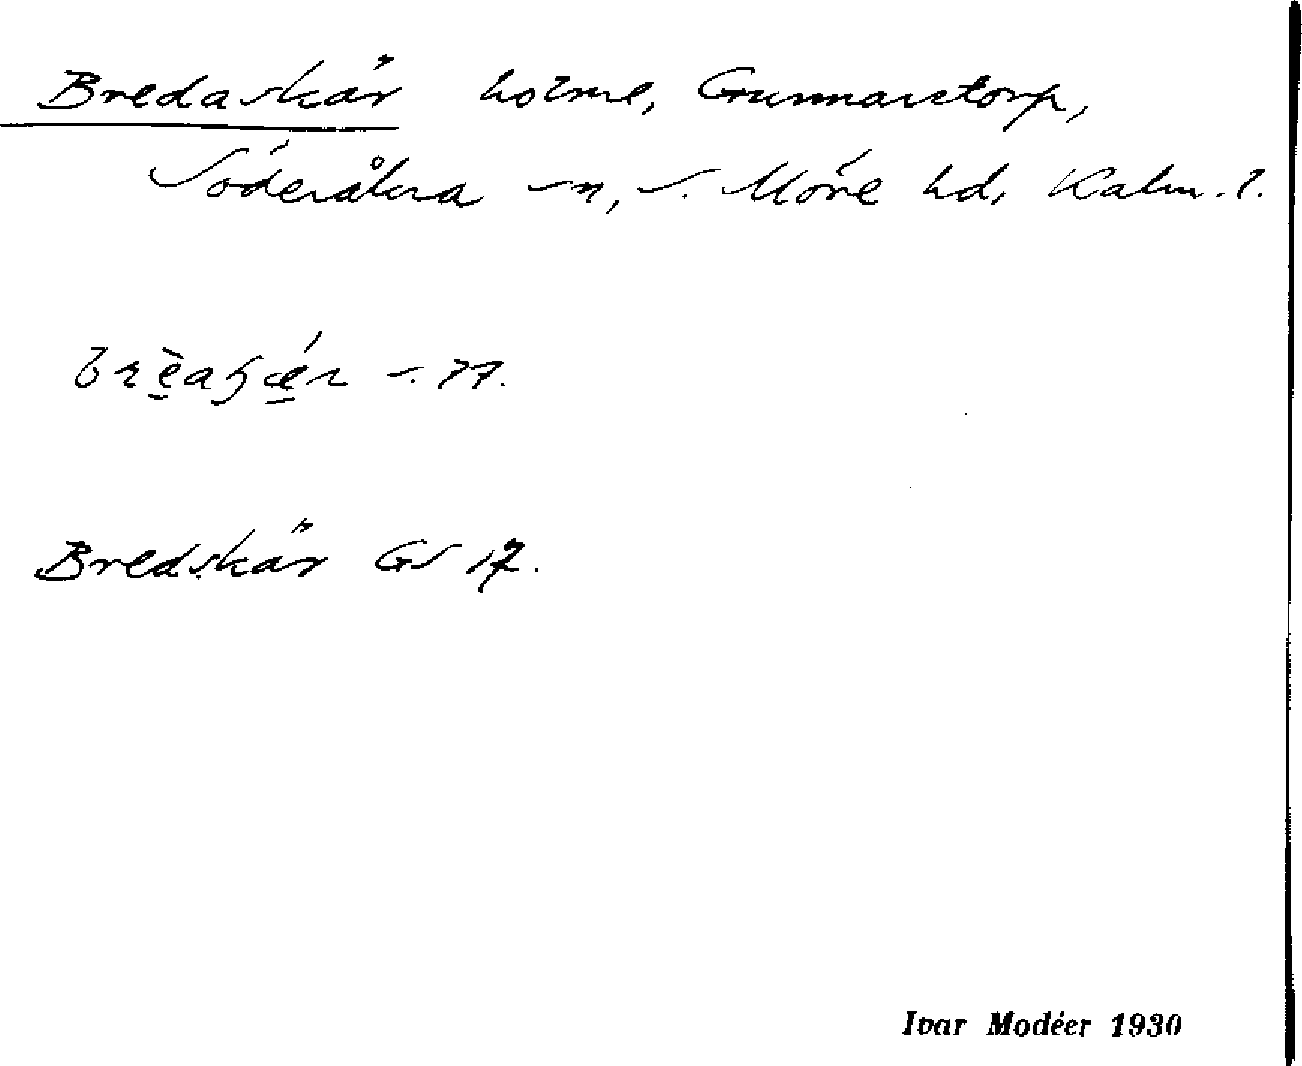 Bredaskär holme, Gunnarstorp,
Söderåkra sn, S. Möre hd, Kalm. l.
s. 77.
Bredskär GS 17.
Ivar Modéer 1930